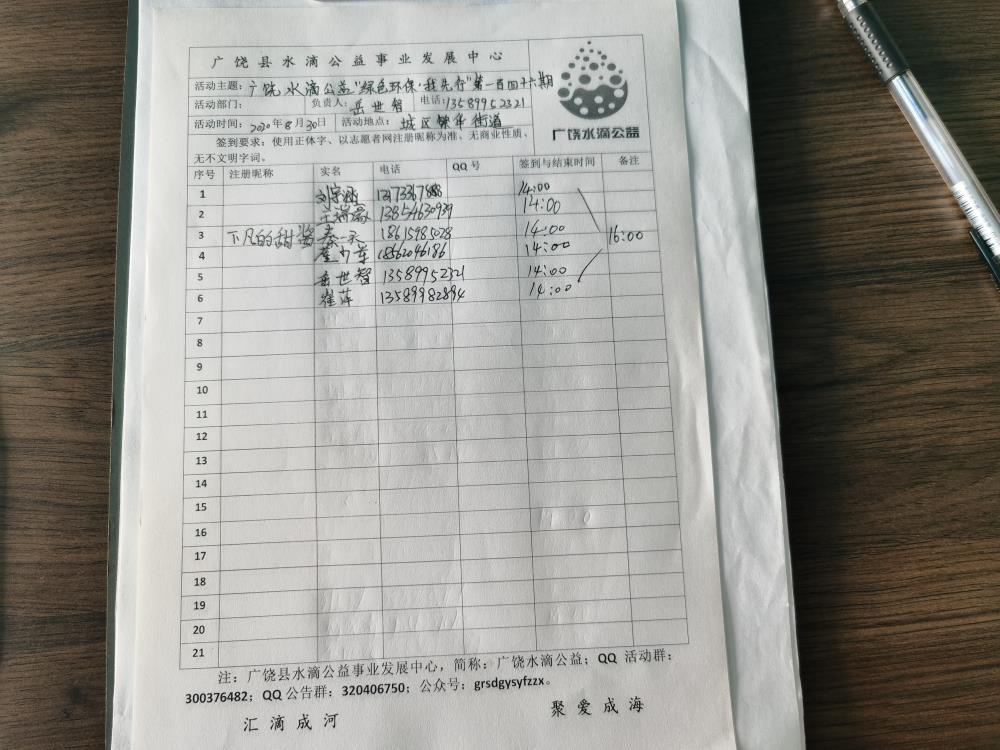 广饶县水滴公益事业发展中心
活动主题：广饶水滴公益"绿色环保·我先行"第一百四十六期
活动部门： 负责人：岳世智 电话：13589952321
活动时间：2020年8月30日 活动地点：城区繁华街道
签到要求：使用正体字、以志愿者网注册昵称为准、无商业性质、
无不文明字词。
广饶水滴公益
序号 注册昵称 实名 电话 QQ号 签到与结束时间 备注
1 14:00
2 13854630939 14:00
3 下凡的甜酱 秦一天 18615985028 14:00 16:00
4 18662046186 14:00
5 岳世智 13589952321 14:00
6 崔萍 13589982894 14:00
7
8
9
10
11
12
13
14
15
16
17
18
19
20
21
注：广饶县水滴公益事业发展中心，简称：广饶水滴公益；QQ 活动群：
300376482；QQ公告群：320406750；公众号：grsdgysyfzzx。
汇滴成河 聚爱成海